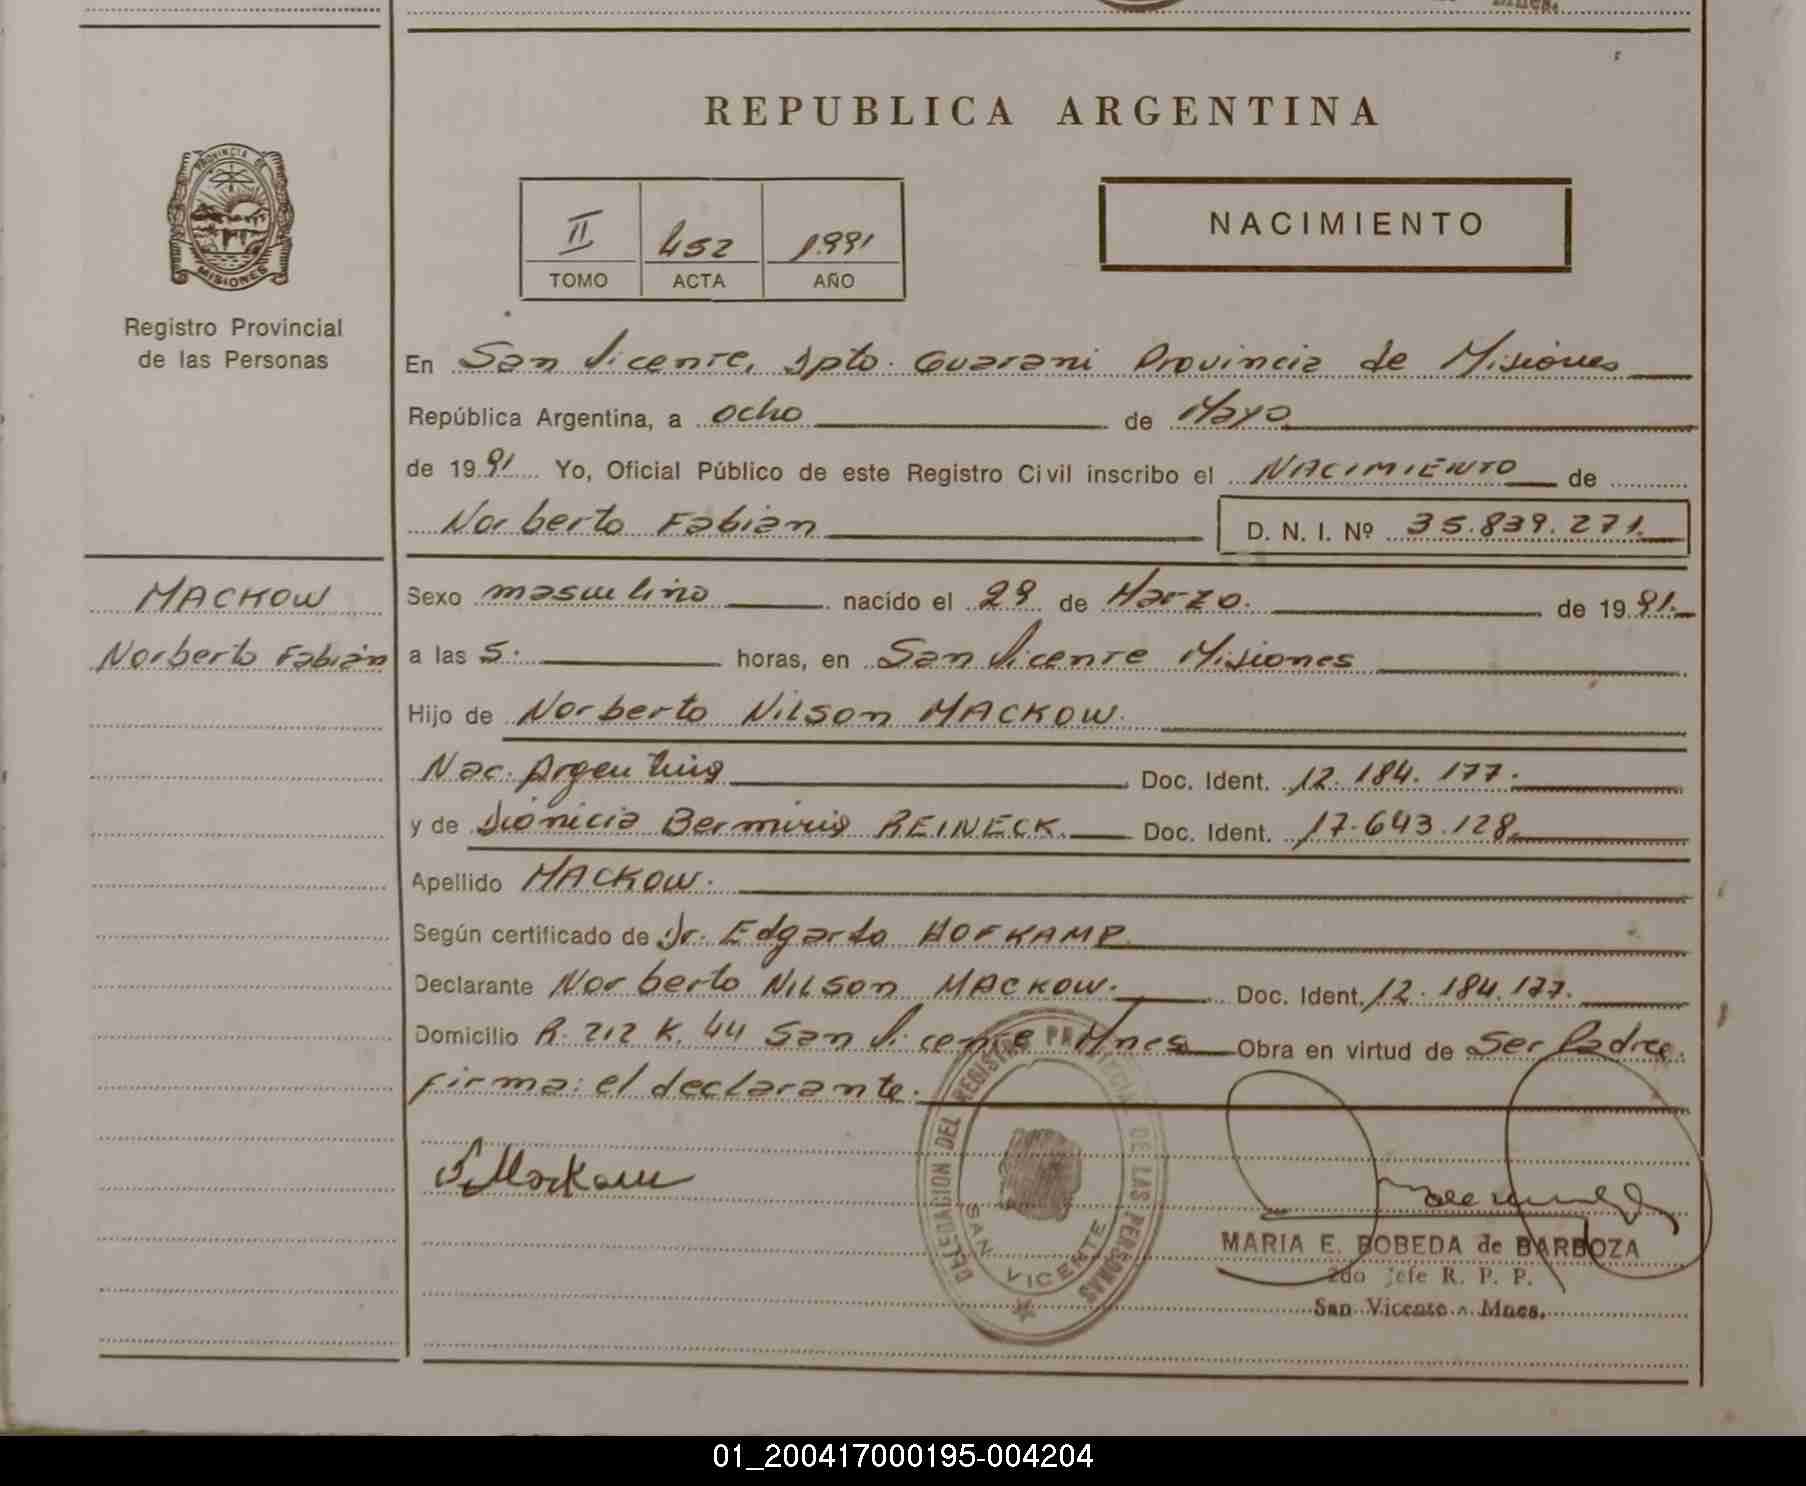 REPUBLICA ARGENTINA
II 452 1991
TOMO ACTA AÑO
NACIMIENTO
PROVINCIA DE
MISIONES
Registro Provincial
de las Personas
En San Vicente, Dpto. Guarani Provincia de Misiones
República Argentina, a ocho de Mayo
de 1991 Yo, Oficial Público de este Registro Civil inscribo el NACIMIENTO de
Norberto Fabian D. N. I. Nº 35.839.271.
MACKOW
Norberto Fabian
Sexo masculino nacido el 29 de Marzo. de 1991.
a las 5. horas, en San Vicente Misiones
Hijo de Norberto Nilson MACKOW.
Nac. Argentina Doc. Ident. 12.184.177.
y de Dionicia Bermiris REINECK. Doc. Ident. 17.643.128
Apellido MACKOW.
Según certificado de Dr. Edgardo HOFKAMP.
Declarante Norberto NILSON MACKOW. Doc. Ident. 12.184.177.
Domicilio R. 212 K. 44 San Vicente Mnes Obra en virtud de Ser Padre.
firma: el declarante.
DELEGACION DEL REGISTRO PROVINCIAL DE LAS PERSONAS
SAN VICENTE
MARIA E. BOBEDA de BARBOZA
2do jefe R. P. P.
San Vicente - Mnes.
01_200417000195-004204